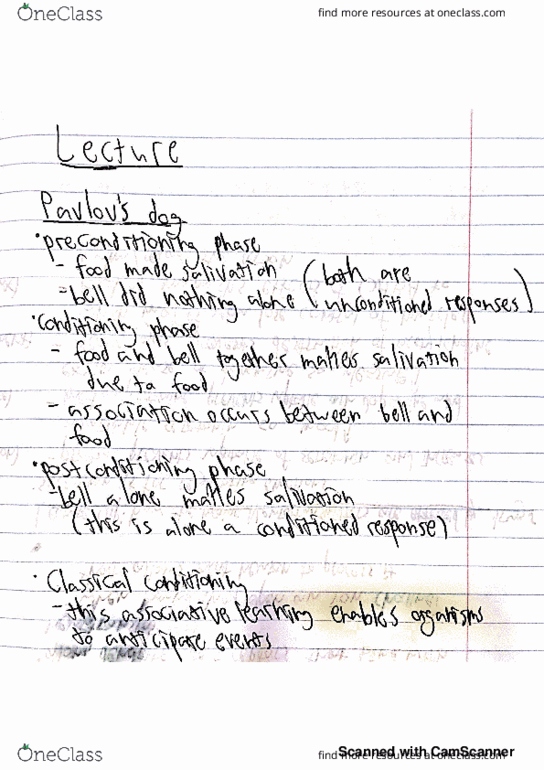 OneClass
find more resources at oneclass.com
Lecture
Pavlov's dog
•preconditioning phase
- food made salivation (both are
- bell did nothing alone unconditioned responses)
•conditioning phase
- food and bell together makes salivation
due to food
- association occurs between bell and
food
•postconditioning phase
- bell alone makes salivation
(this is alone a conditioned response)
• Classical conditioning
- this associative learning enables organisms
to anticipate events
OneClass
find more resources at oneclass.com
Scanned with CamScanner